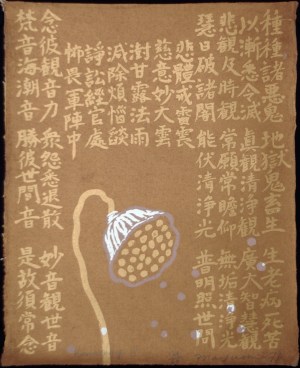 種種諸惡趣 地獄鬼畜生 生老病死苦
以漸悉令滅 真觀清淨觀 廣大智慧觀
悲觀及慈觀 常願常瞻仰 無垢清淨光
慧日破諸闇 能伏災風火 普明照世間
悲體戒雷震
慈意妙大雲
澍甘露法雨
滅除煩惱焰
諍訟經官處
怖畏軍陣中
念彼觀音力 衆怨悉退散 妙音觀世音
梵音海潮音 勝彼世間音 是故須常念